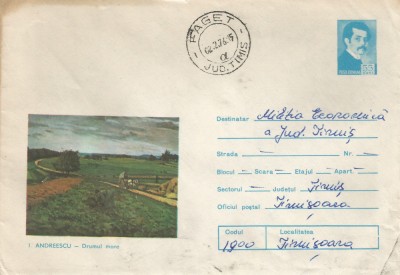 FAGET
02.2.76.15
JUD. TIMIS
Destinatar Miliția Economică
a Jud. Timiș
Strada — Nr. —
Blocul — Scara — Etajul — Apart. —
Sectorul — Județul Timiș
Oficiul poștal Timișoara
Codul Localitatea
1900 Timișoara
I. ANDREESCU – Drumul mare